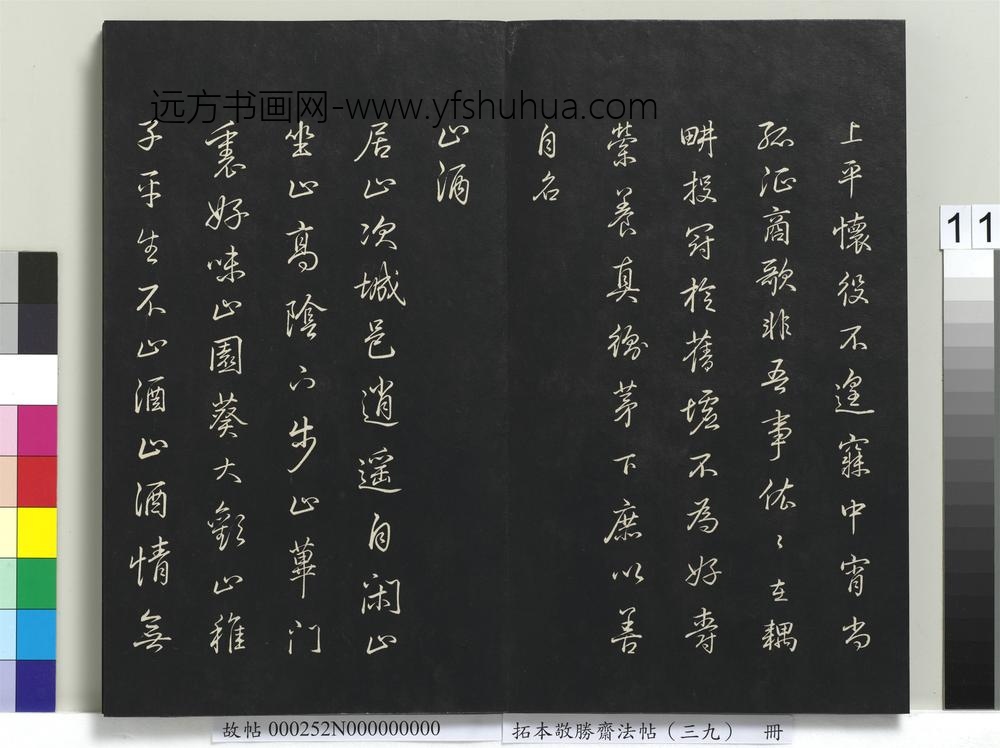 远方书画网-www.yfshuhua.com
上平懷役不遑寐中宵尚
孤征商歌非吾事依〻在耦
畊投冠於舊墟不為好爵
縈養真衡茅下庶以善
自名
止酒
居止次城邑逍遥自闲止
坐止高陰下步止蓽门
裏好味止園葵大歡止稚
子平生不止酒止酒情無
11
故帖 000252N000000000
拓本敬勝齋法帖（三九） 冊